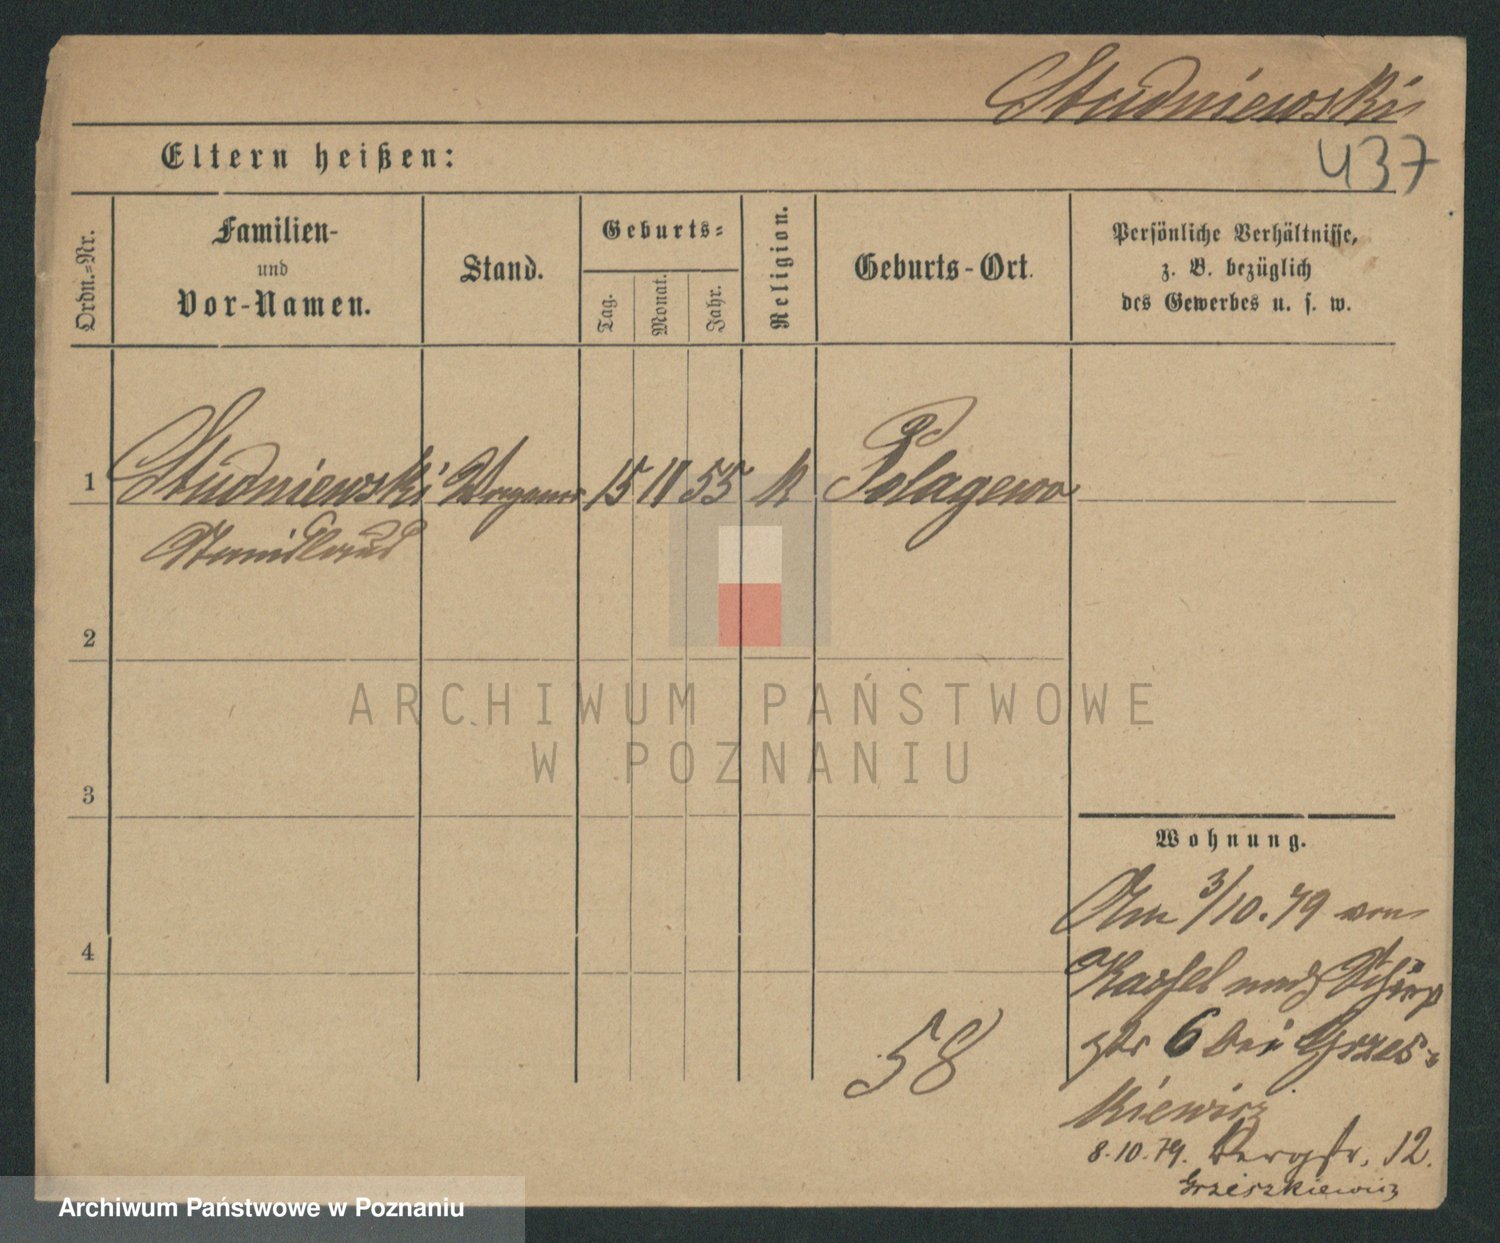 Studniewski
437
Eltern heißen:
Ordn.-Nr.
Familien-
und
Vor-Namen.
Stand.
Geburts-
Tag.
Monat.
Jahr.
Religion.
Geburts-Ort.
Persönliche Verhältnisse,
z. B. bezüglich
des Gewerbes u. s. w.
1 Studniewski 15 11 55 K Polagewo
Stanislaus
2
3
4
Wohnung.
Am 3/10.79 von
nach
6 bei Grzes-
kiewicz
8.10.79. Bergstr. 12.
Grzeszkiewicz
58
ARCHIWUM PAŃSTWOWE
W POZNANIU
Archiwum Państwowe w Poznaniu